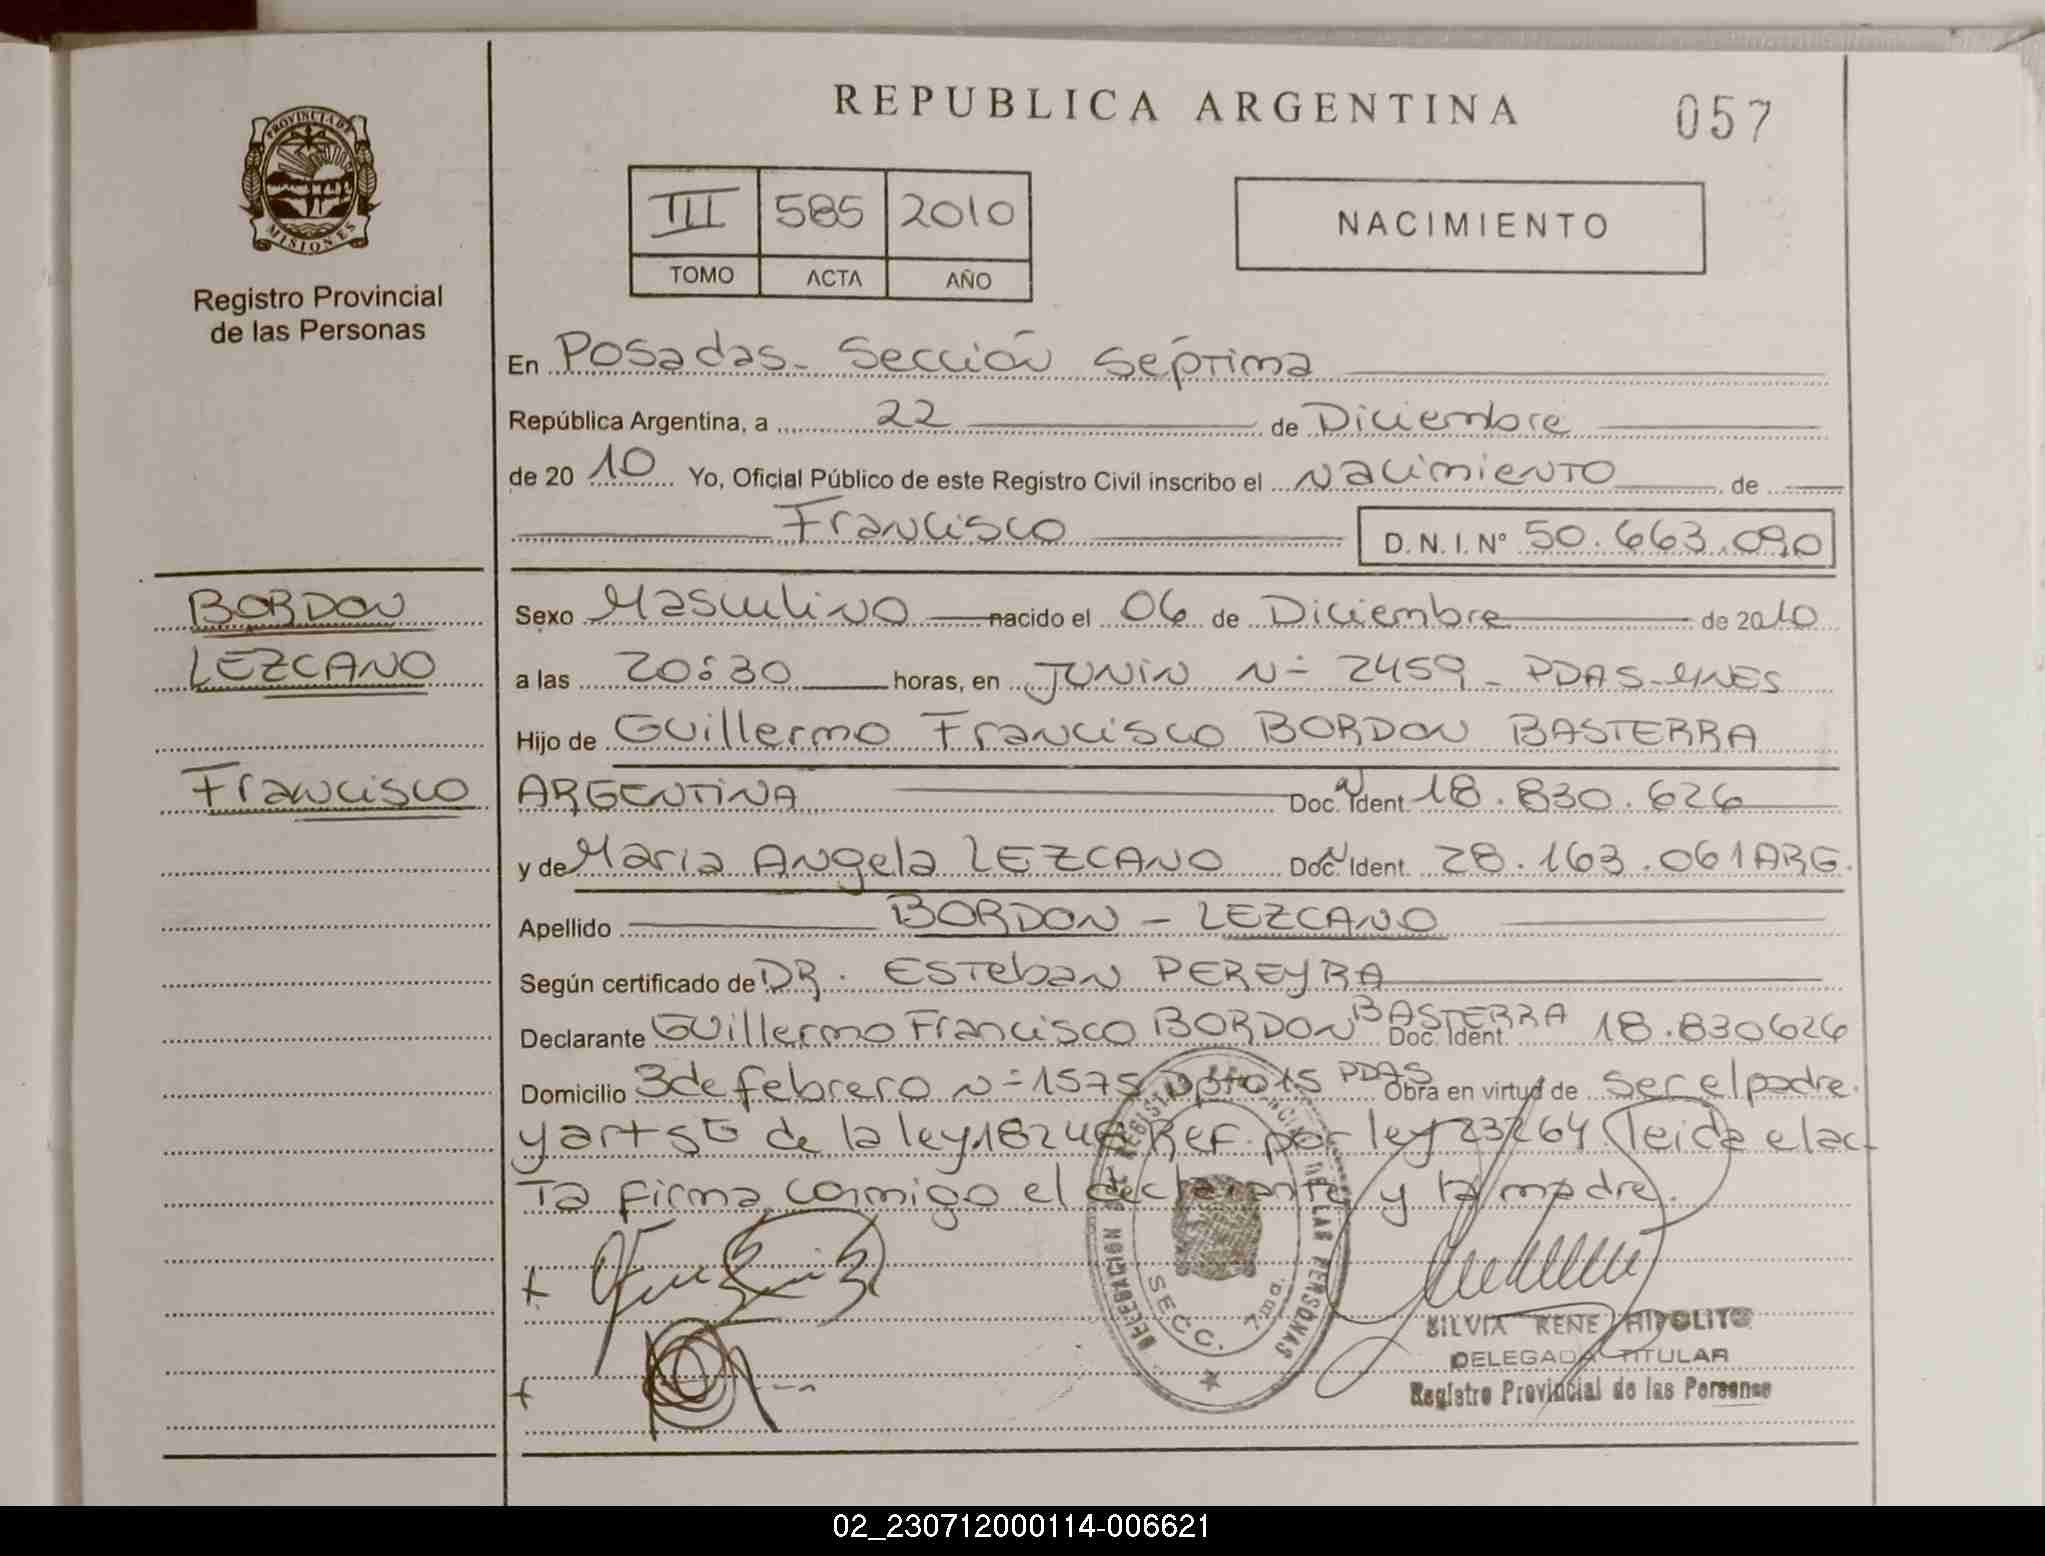 REPUBLICA ARGENTINA
057
PROVINCIA DE
MISIONES
Registro Provincial
de las Personas
III 585 2010
TOMO ACTA AÑO
NACIMIENTO
En Posadas - Sección Séptima
República Argentina, a 22 de Diciembre
de 20 10 Yo, Oficial Público de este Registro Civil inscribo el Nacimiento de
Francisco D. N. I. N° 50.663.090
BORDON
LEZCANO
Francisco
Sexo Masculino nacido el 06 de Diciembre de 2010
a las 20:30 horas, en JUNIN N° 2459 - PDAS - MNES
Hijo de Guillermo Francisco BORDON BASTERRA
ARGENTINA Doc. Ident. 18.830.626
y de Maria Angela LEZCANO Doc. Ident. 28.163.061 ARG.
Apellido BORDON - LEZCANO
Según certificado de DR. ESTeban PEREYRA
Declarante Guillermo Francisco BORDON BASTERRA Doc. Ident. 18.830626
Domicilio 3 de febrero N° 1575 Dpto 15 PDAS Obra en virtud de ser el padre.
y art 5to de la ley 18248 Ref. por ley 23264. leida el ac-
Ta firma conmigo el declarante y la madre.
DELEGACION DE REGISTRO PROVINCIAL DE LAS PERSONAS
SECC. 7ma.
SILVIA RENE HIPOLITO
DELEGADA TITULAR
Registro Provincial de las Personas
02_230712000114-006621